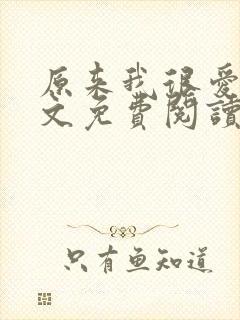 原来我很爱
文免費閱讀
只有鱼知道